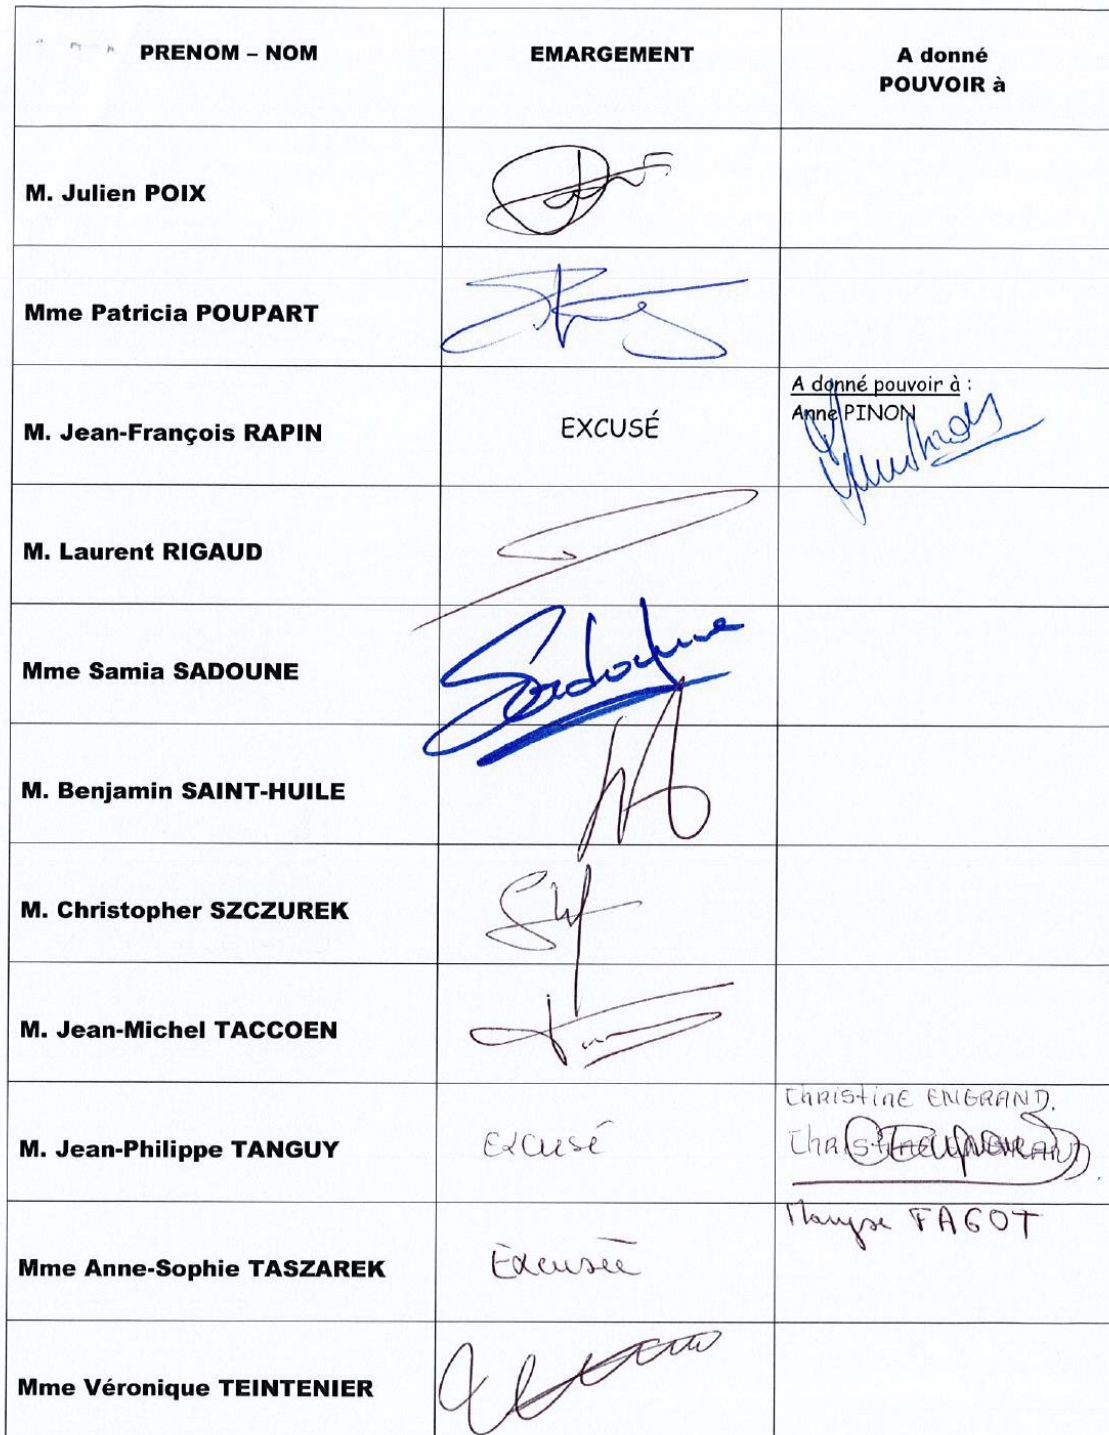 PRENOM – NOM
EMARGEMENT
A donné
POUVOIR à
M. Julien POIX
Mme Patricia POUPART
M. Jean-François RAPIN
EXCUSÉ
A donné pouvoir à :
Anne PINON
M. Laurent RIGAUD
Mme Samia SADOUNE
Sadoune
M. Benjamin SAINT-HUILE
M. Christopher SZCZUREK
M. Jean-Michel TACCOEN
M. Jean-Philippe TANGUY
Excusé
Christine ENGRAND.
Christine ENGRAND.
Mme Anne-Sophie TASZAREK
Excusée
Maryse FAGOT
Mme Véronique TEINTENIER